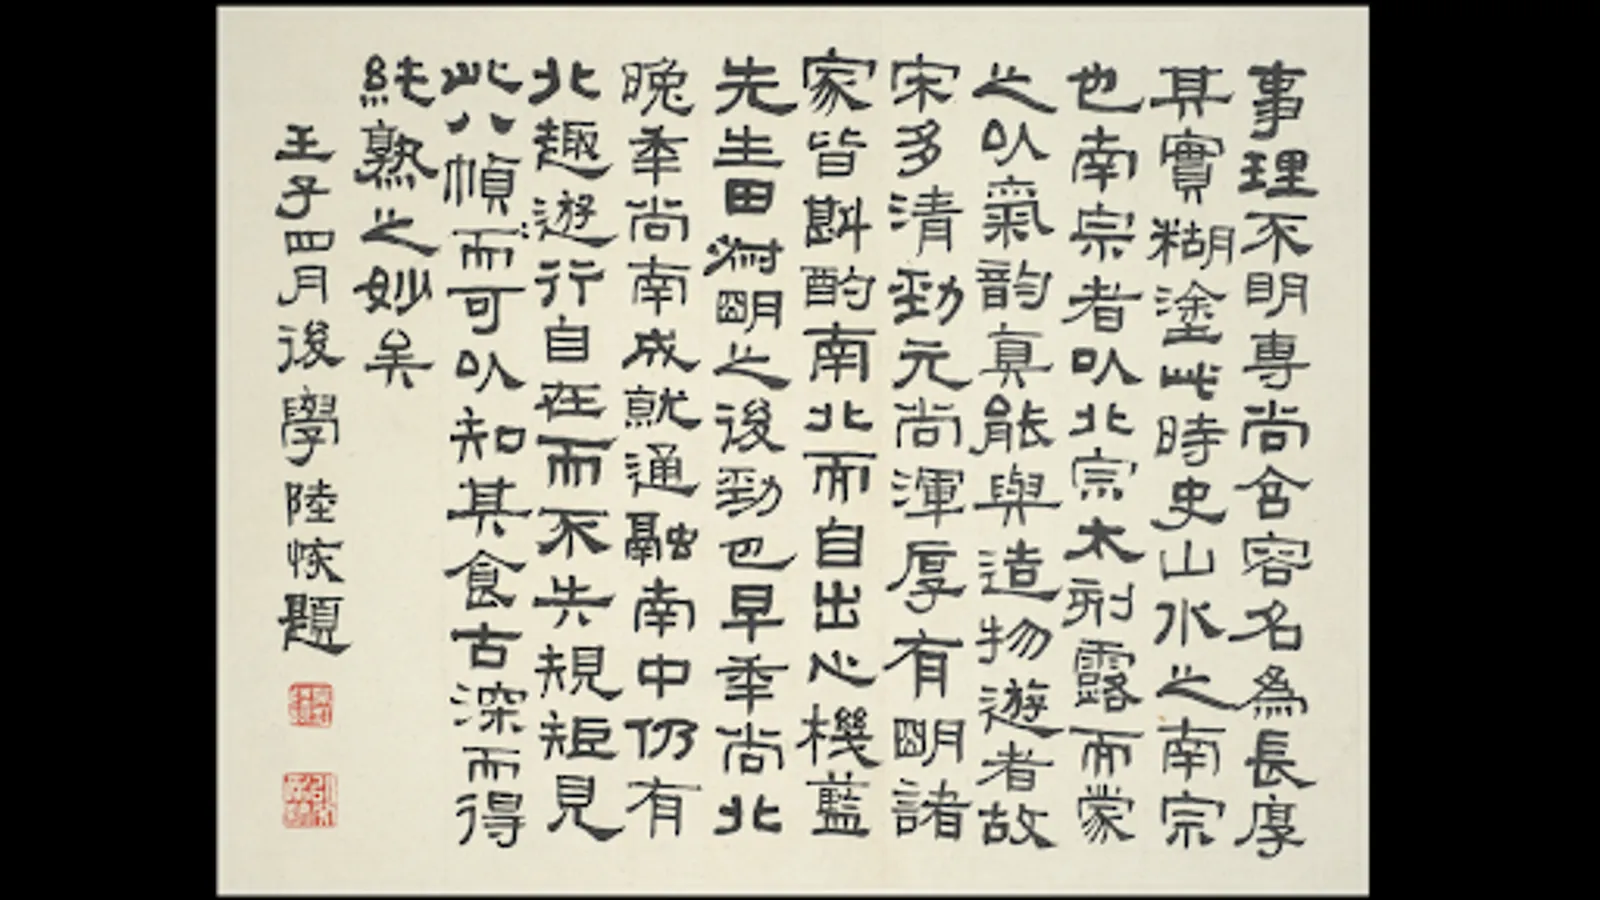 事理不明専尚含容名為長厚
其實糊塗此時史山水之南宗
也南宗者以北宗太刻露而蒙
之以氣韵真能與造物遊者故
宋多清勁元尚渾厚有明諸
家皆斟酌南北而自出心機藍
先生田叔明之後勁也早年尚北
晚年尚南成就通融南中仍有
北趣遊行自在而不失規矩見
此八幀而可以知其食古深而得
純熟之妙矣
壬子四月後學陸恢題